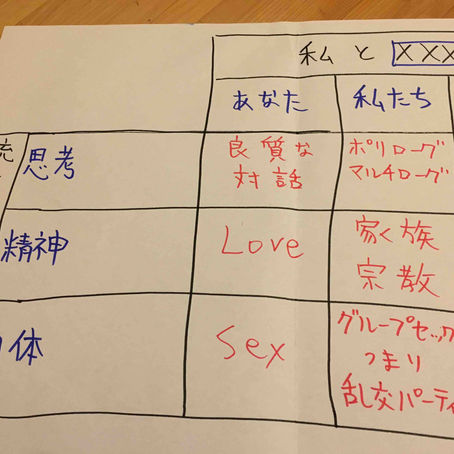 私 と XXX
あなた 私たち
思考 良質な 対話 ポリローグ マルチローグ
精神 Love 家族 宗教
体 Sex グループセック つまり 乱交パーティ